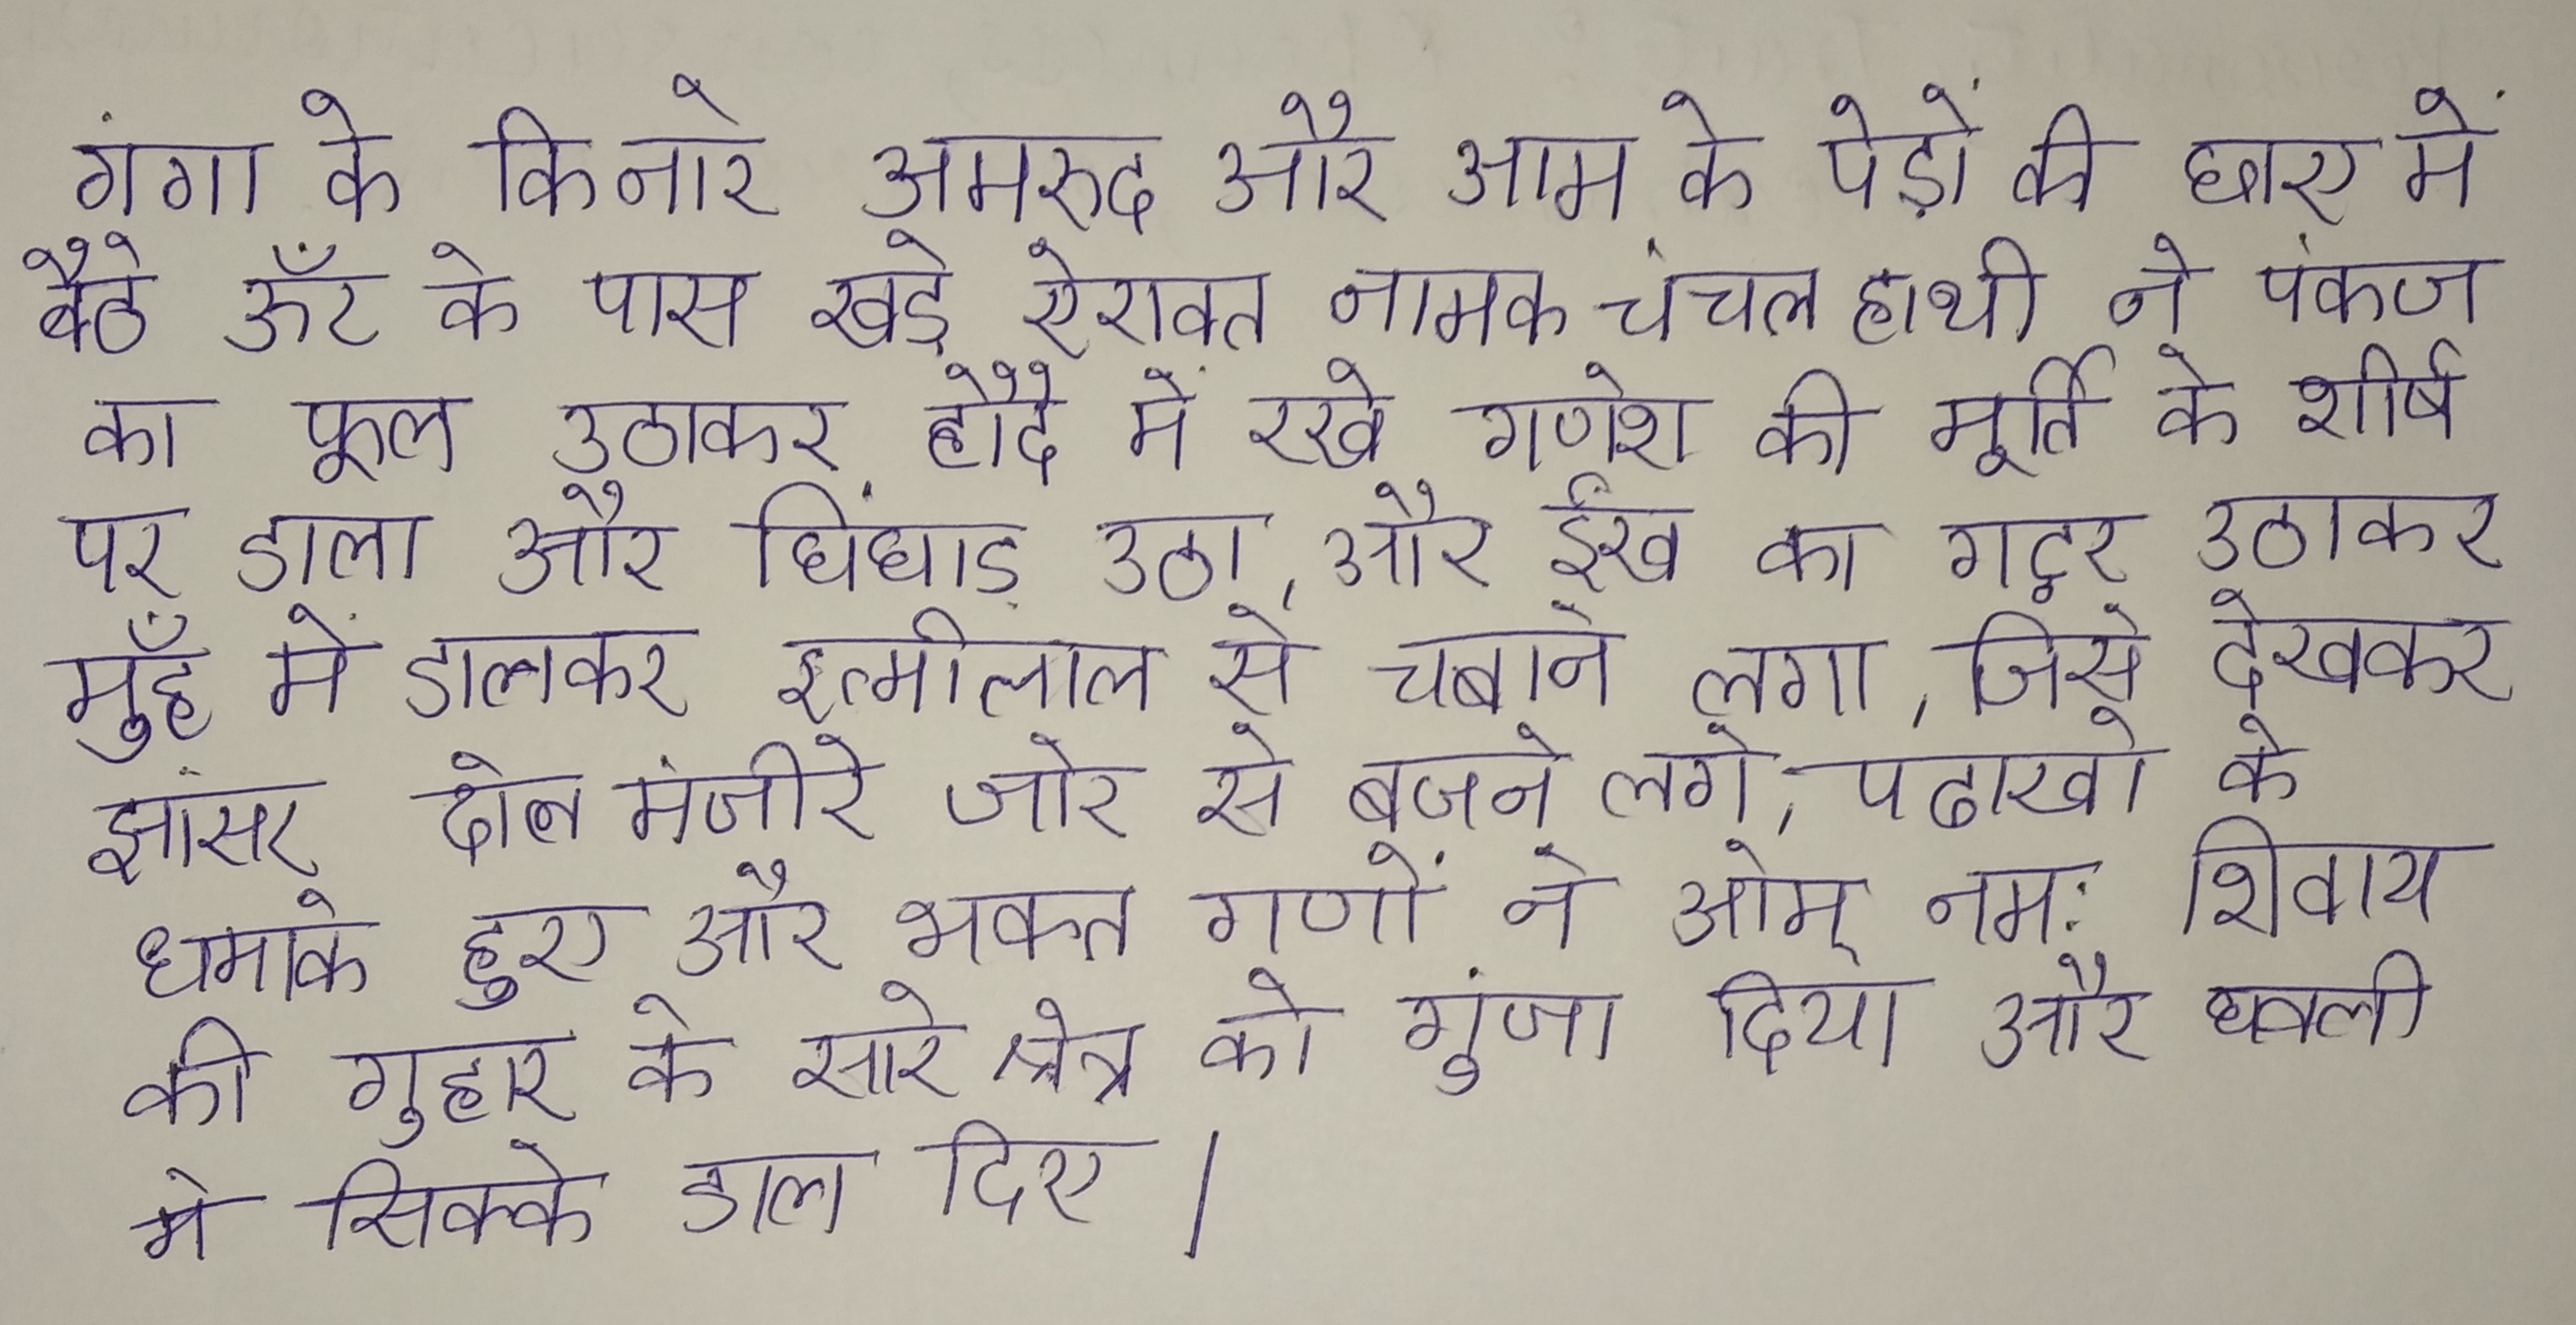 गंगा के किनारे अमरुद और आम के पेड़ों की छाए में
बैठे ऊँट के पास खड़े ऐरावत नामक चंचल हाथी ने पंकज
का फूल उठाकर हौदै में रखे गणेश की मूर्ति के शीर्ष
पर डाला और घिंघाड़ उठा, और ईख का गट्ठर उठाकर
मुँह में डालकर इत्मीलाल से चबाने लगा, जिसे देखकर
झांसर ढोल मंजीरे जोर से बजने लगे, पढाखो के
धमाके हुए और भक्त गणों ने ओम् नमः शिवाय
की गुहार के सारे क्षेत्र को गुंजा दिया और धवली
मे सिक्के डाल दिए।